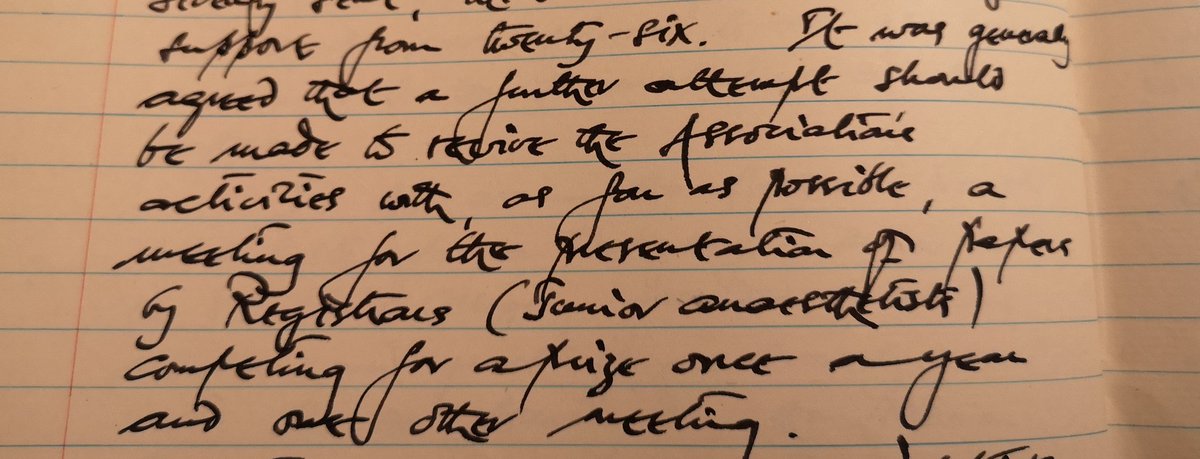 support from twenty-six. It was generally
agreed that a further attempt should
be made to revive the Association's
activities with, as far as possible, a
meeting for the presentation of papers
by Registrars (Junior anaesthetists)
competing for a prize once a year
and one other meeting.